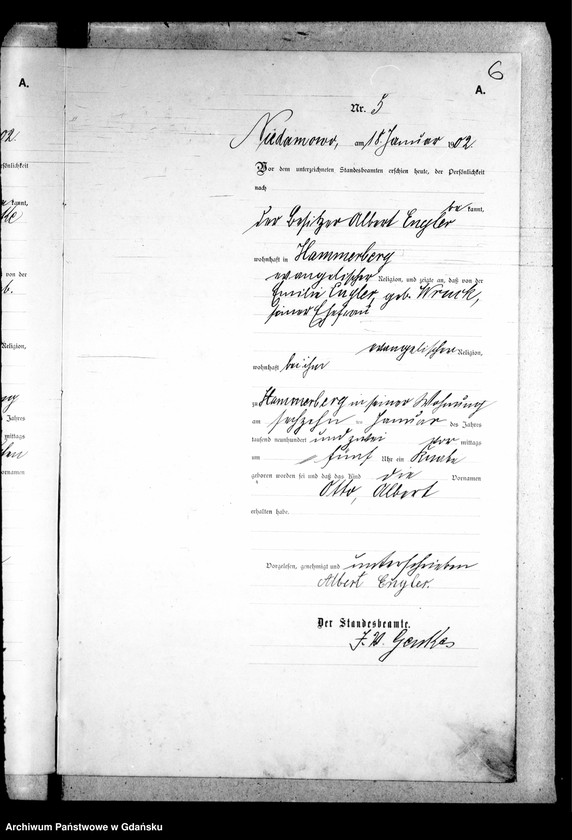 6
A.
A.
Nr. 5
Niedamowo, am 18 Januar 1902.
Vor dem unterzeichneten Standesbeamten erschien heute, der Persönlichkeit
nach
be kannt,
der Besitzer Albert Engler
wohnhaft in Hammerberg
evangelischer Religion, und zeigte an, daß von der
Emilie Engler, geb. Wruck,
seiner Ehefrau
evangelischer Religion,
wohnhaft bei ihm
zu Hammerberg in seiner Wohnung
am sechzehn ten Januar des Jahres
tausend neunhundert und zwei vor mittags
um fünf Uhr ein Knabe
geboren worden sei und daß das Kind die Vornamen
Otto, Albert
erhalten habe.
Vorgelesen, genehmigt und unterschrieben
Albert Engler.
Der Standesbeamte.
02.
kannt,
von der
Religion,
Jahres
mittags
Vornamen
Archiwum Państwowe w Gdańsku